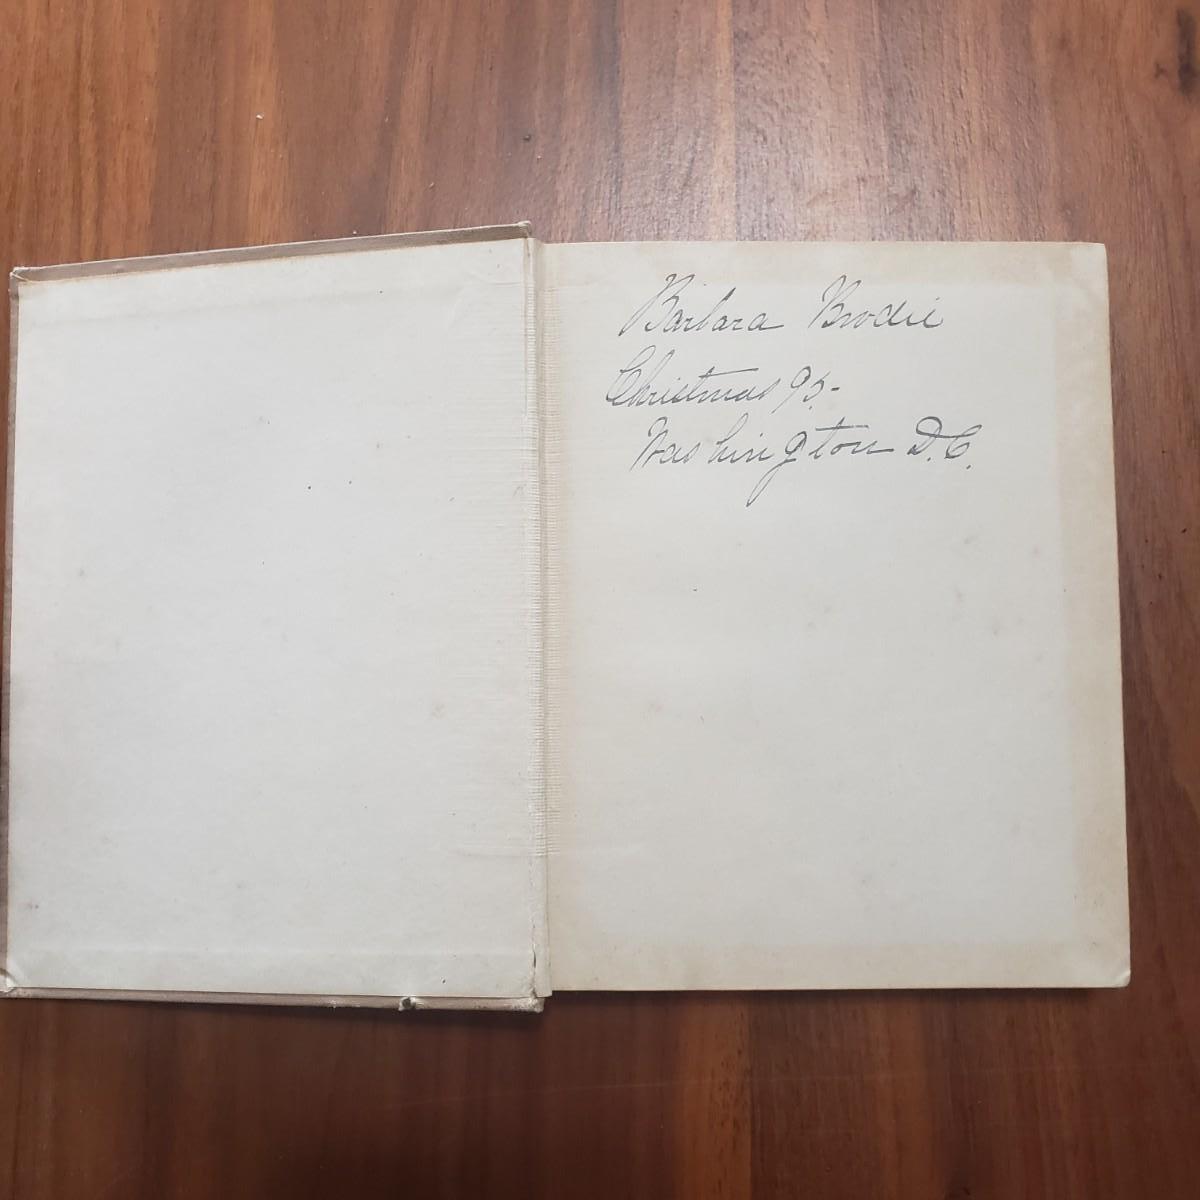 Barbara Brodie
Christmas 95-
Washington D.C.